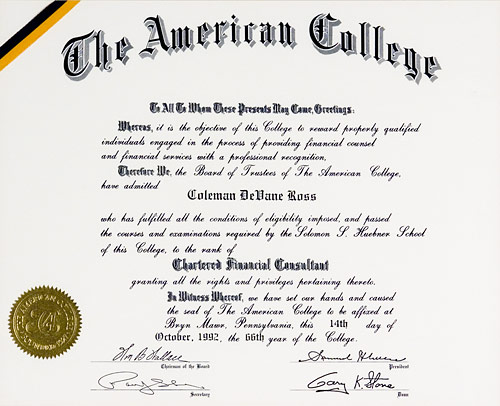 The American College
To All To Whom These Presents May Come, Greetings:
Whereas, it is the objective of this College to reward properly qualified
individuals engaged in the process of providing financial counsel
and financial services with a professional recognition,
Therefore We, the Board of Trustees of The American College,
have admitted
Coleman DeVane Ross
who has fulfilled all the conditions of eligibility imposed, and passed
the courses and examinations required by the Solomon S. Huebner School
of this College, to the rank of
Chartered Financial Consultant
granting all the rights and privileges pertaining thereto.
In Witness Whereof, we have set our hands and caused
the seal of The American College to be affixed at
Bryn Mawr, Pennsylvania, this 14th day of
October, 1992, the 66th year of the College.
Wm B Wallace
Chairman of the Board
President
Secretary
Gary K. Stone
Dean